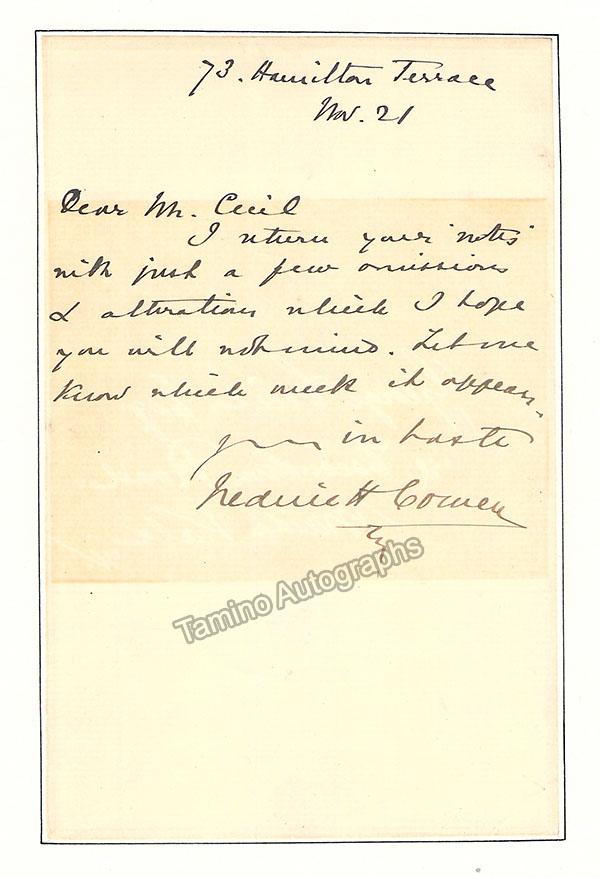 73. Hamilton Terrace
Nov. 21
Dear Mr. Cecil
I return your "notes"
with just a few omissions
& alterations which I hope
you will not mind. Let me
know which week it appears.
Yours in haste
Frederic H Cowen
Tamino Autographs